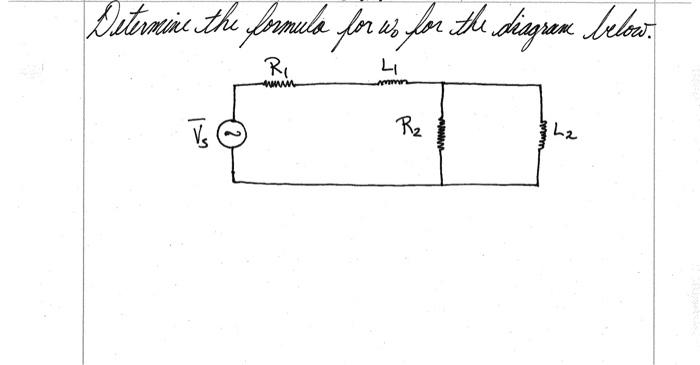 Determine the formula for ω₀ for the diagram below.
R₁ L₁
V̅s R₂ L₂